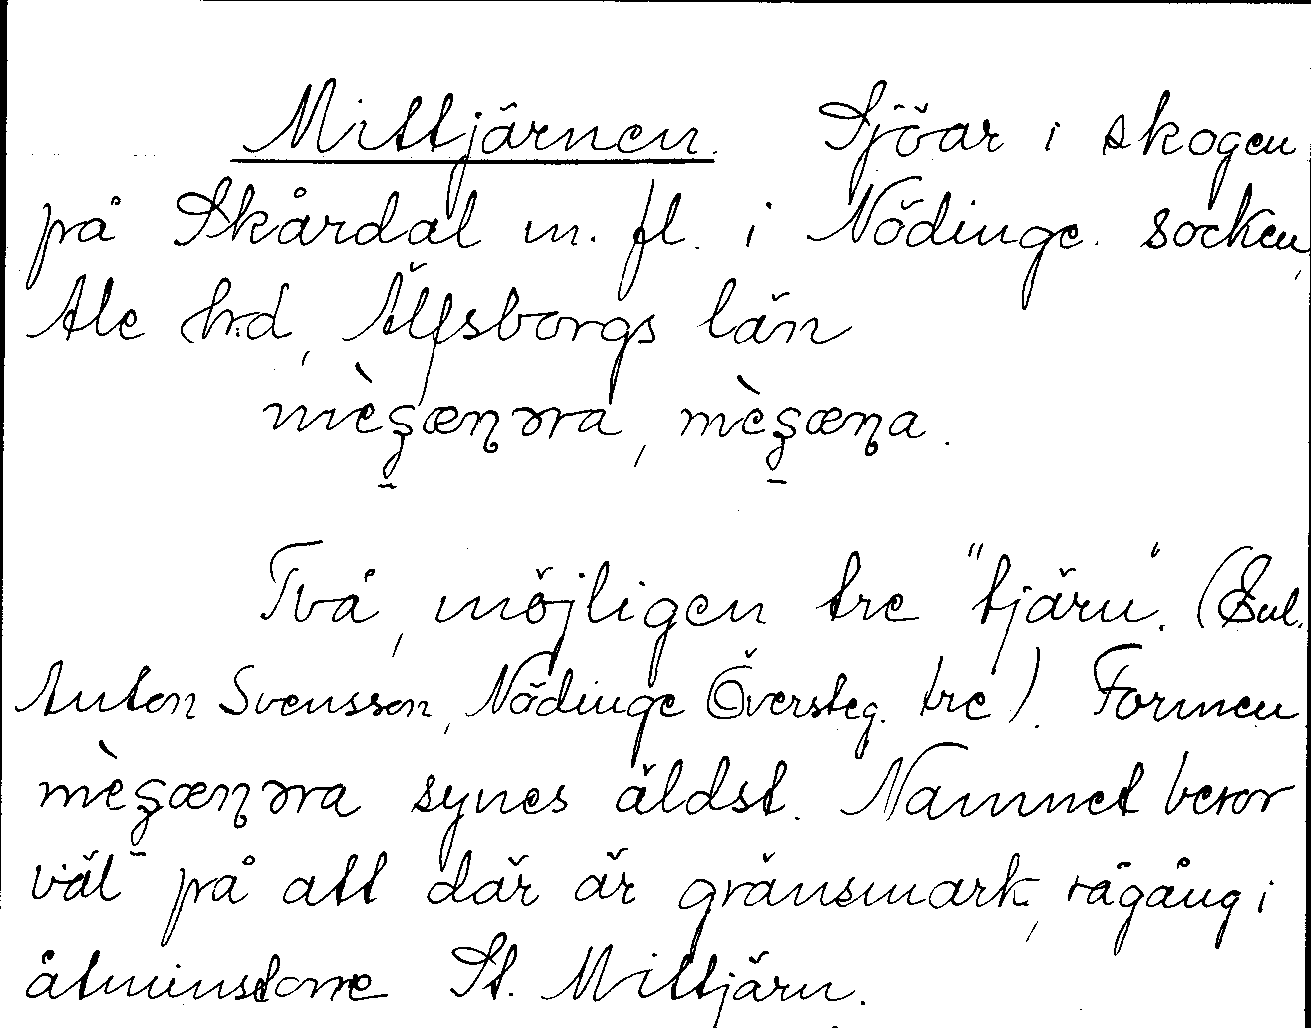 Mittjärnen. Sjöar i skogen
på Skårdal m. fl. i Nödinge socken,
Ale hd, Älfsborgs län
mèʂæɳəra, mèʂæɳa.
Två, möjligen tre "tjärn". (Enl.
Anton Svensson, Nödinge Översteg. tre). Formen
mèʂæɳəra synes äldst. Namnet beror
väl på att där är gränsmark, rågång i
åtminstone St. Mittjärn.